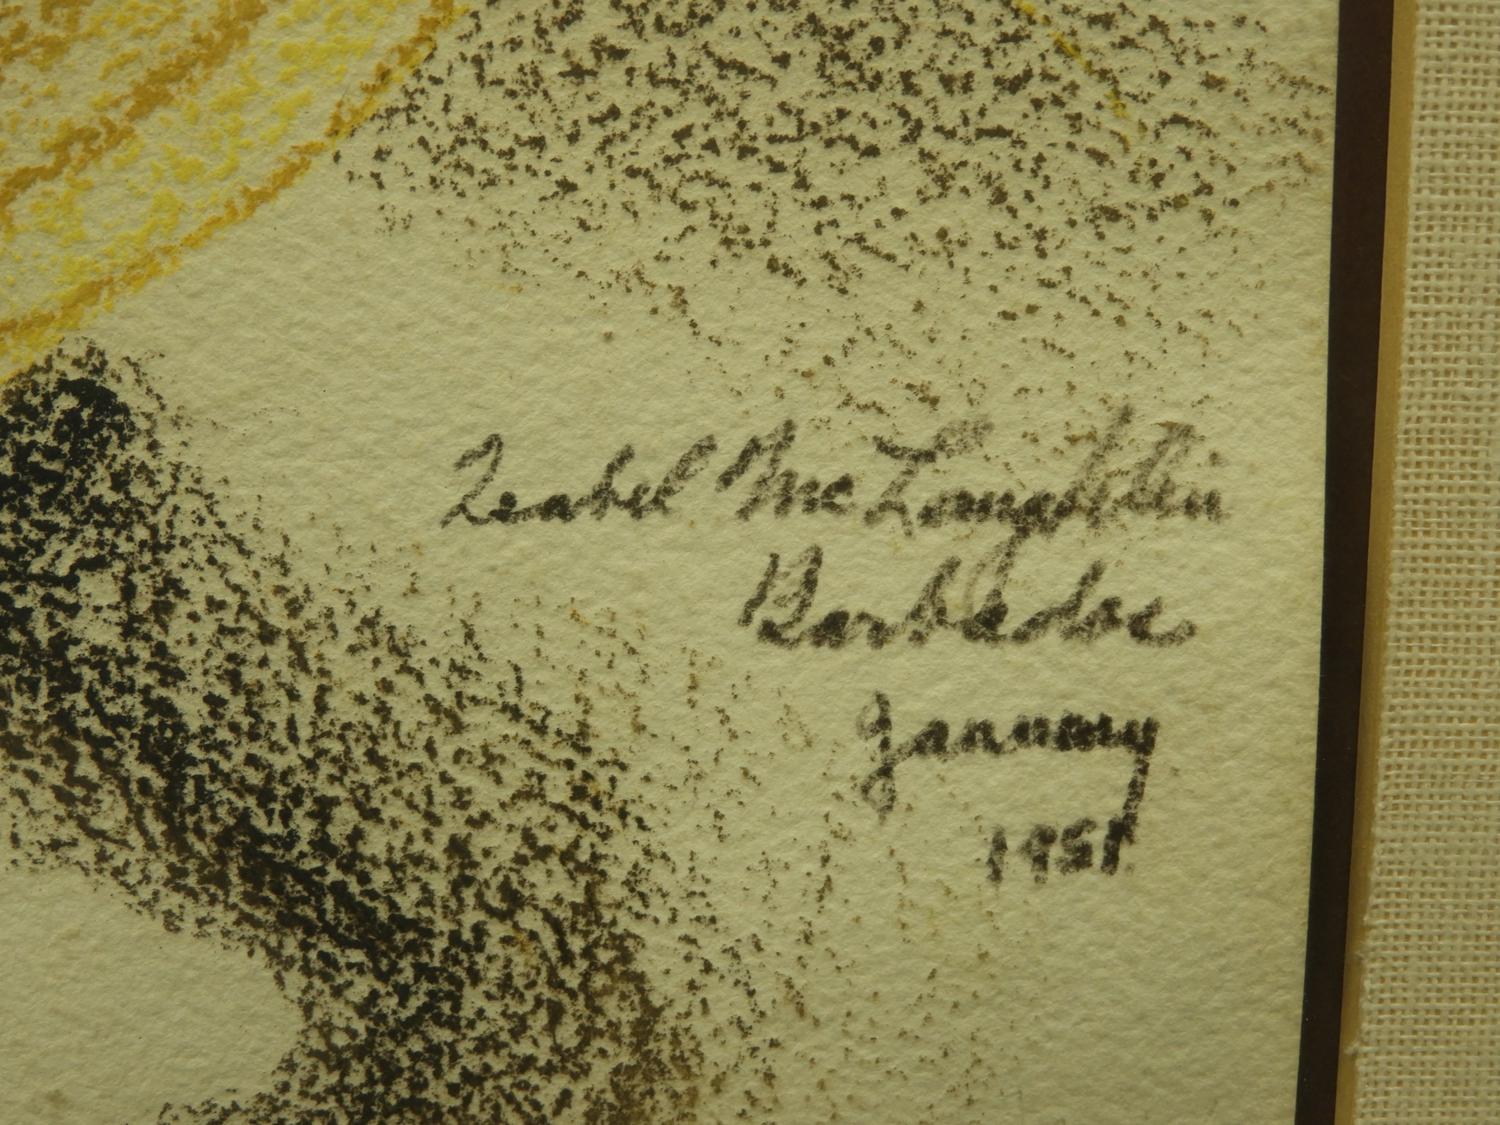 Isabel McLaughlin
Barbados
January
1951